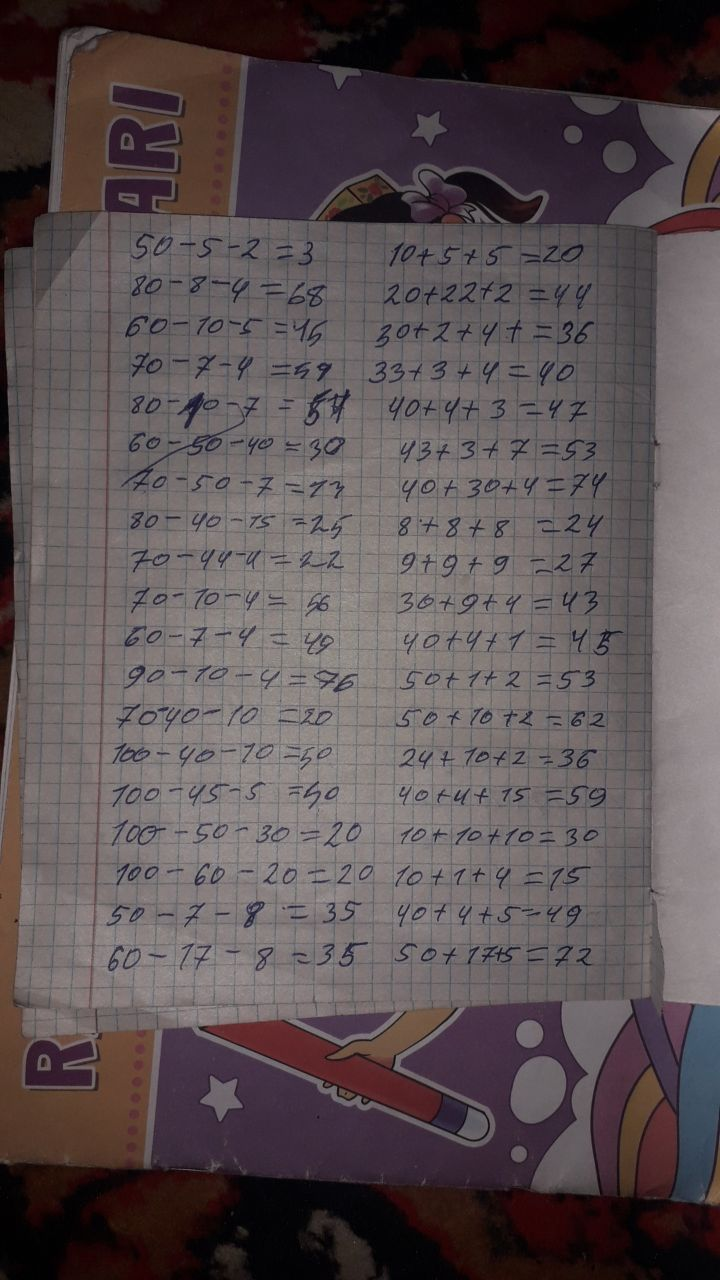 ARI
50-5-2=3 10+5+5=20
80-8-4=68 20+22+2=44
60-10-5=45 30+2+4+=36
70-7-4=59 33+3+4=40
80-10-7=57 40+4+3=47
60-50-40=30 43+3+7=53
70-50-7=13 40+30+4=74
80-40-15=25 8+8+8=24
70-44-4=22 9+9+9=27
70-10-4=56 30+9+4=43
60-7-4=49 40+4+1=45
90-10-4=76 50+1+2=53
70-40-10=20 50+10+2=62
100-40-10=50 24+10+2=36
100-45-5=50 40+4+15=59
100-50-30=20 10+10+10=30
100-60-20=20 10+1+4=15
50-7-8=35 40+4+5=49
60-17-8=35 50+17+5=72
R